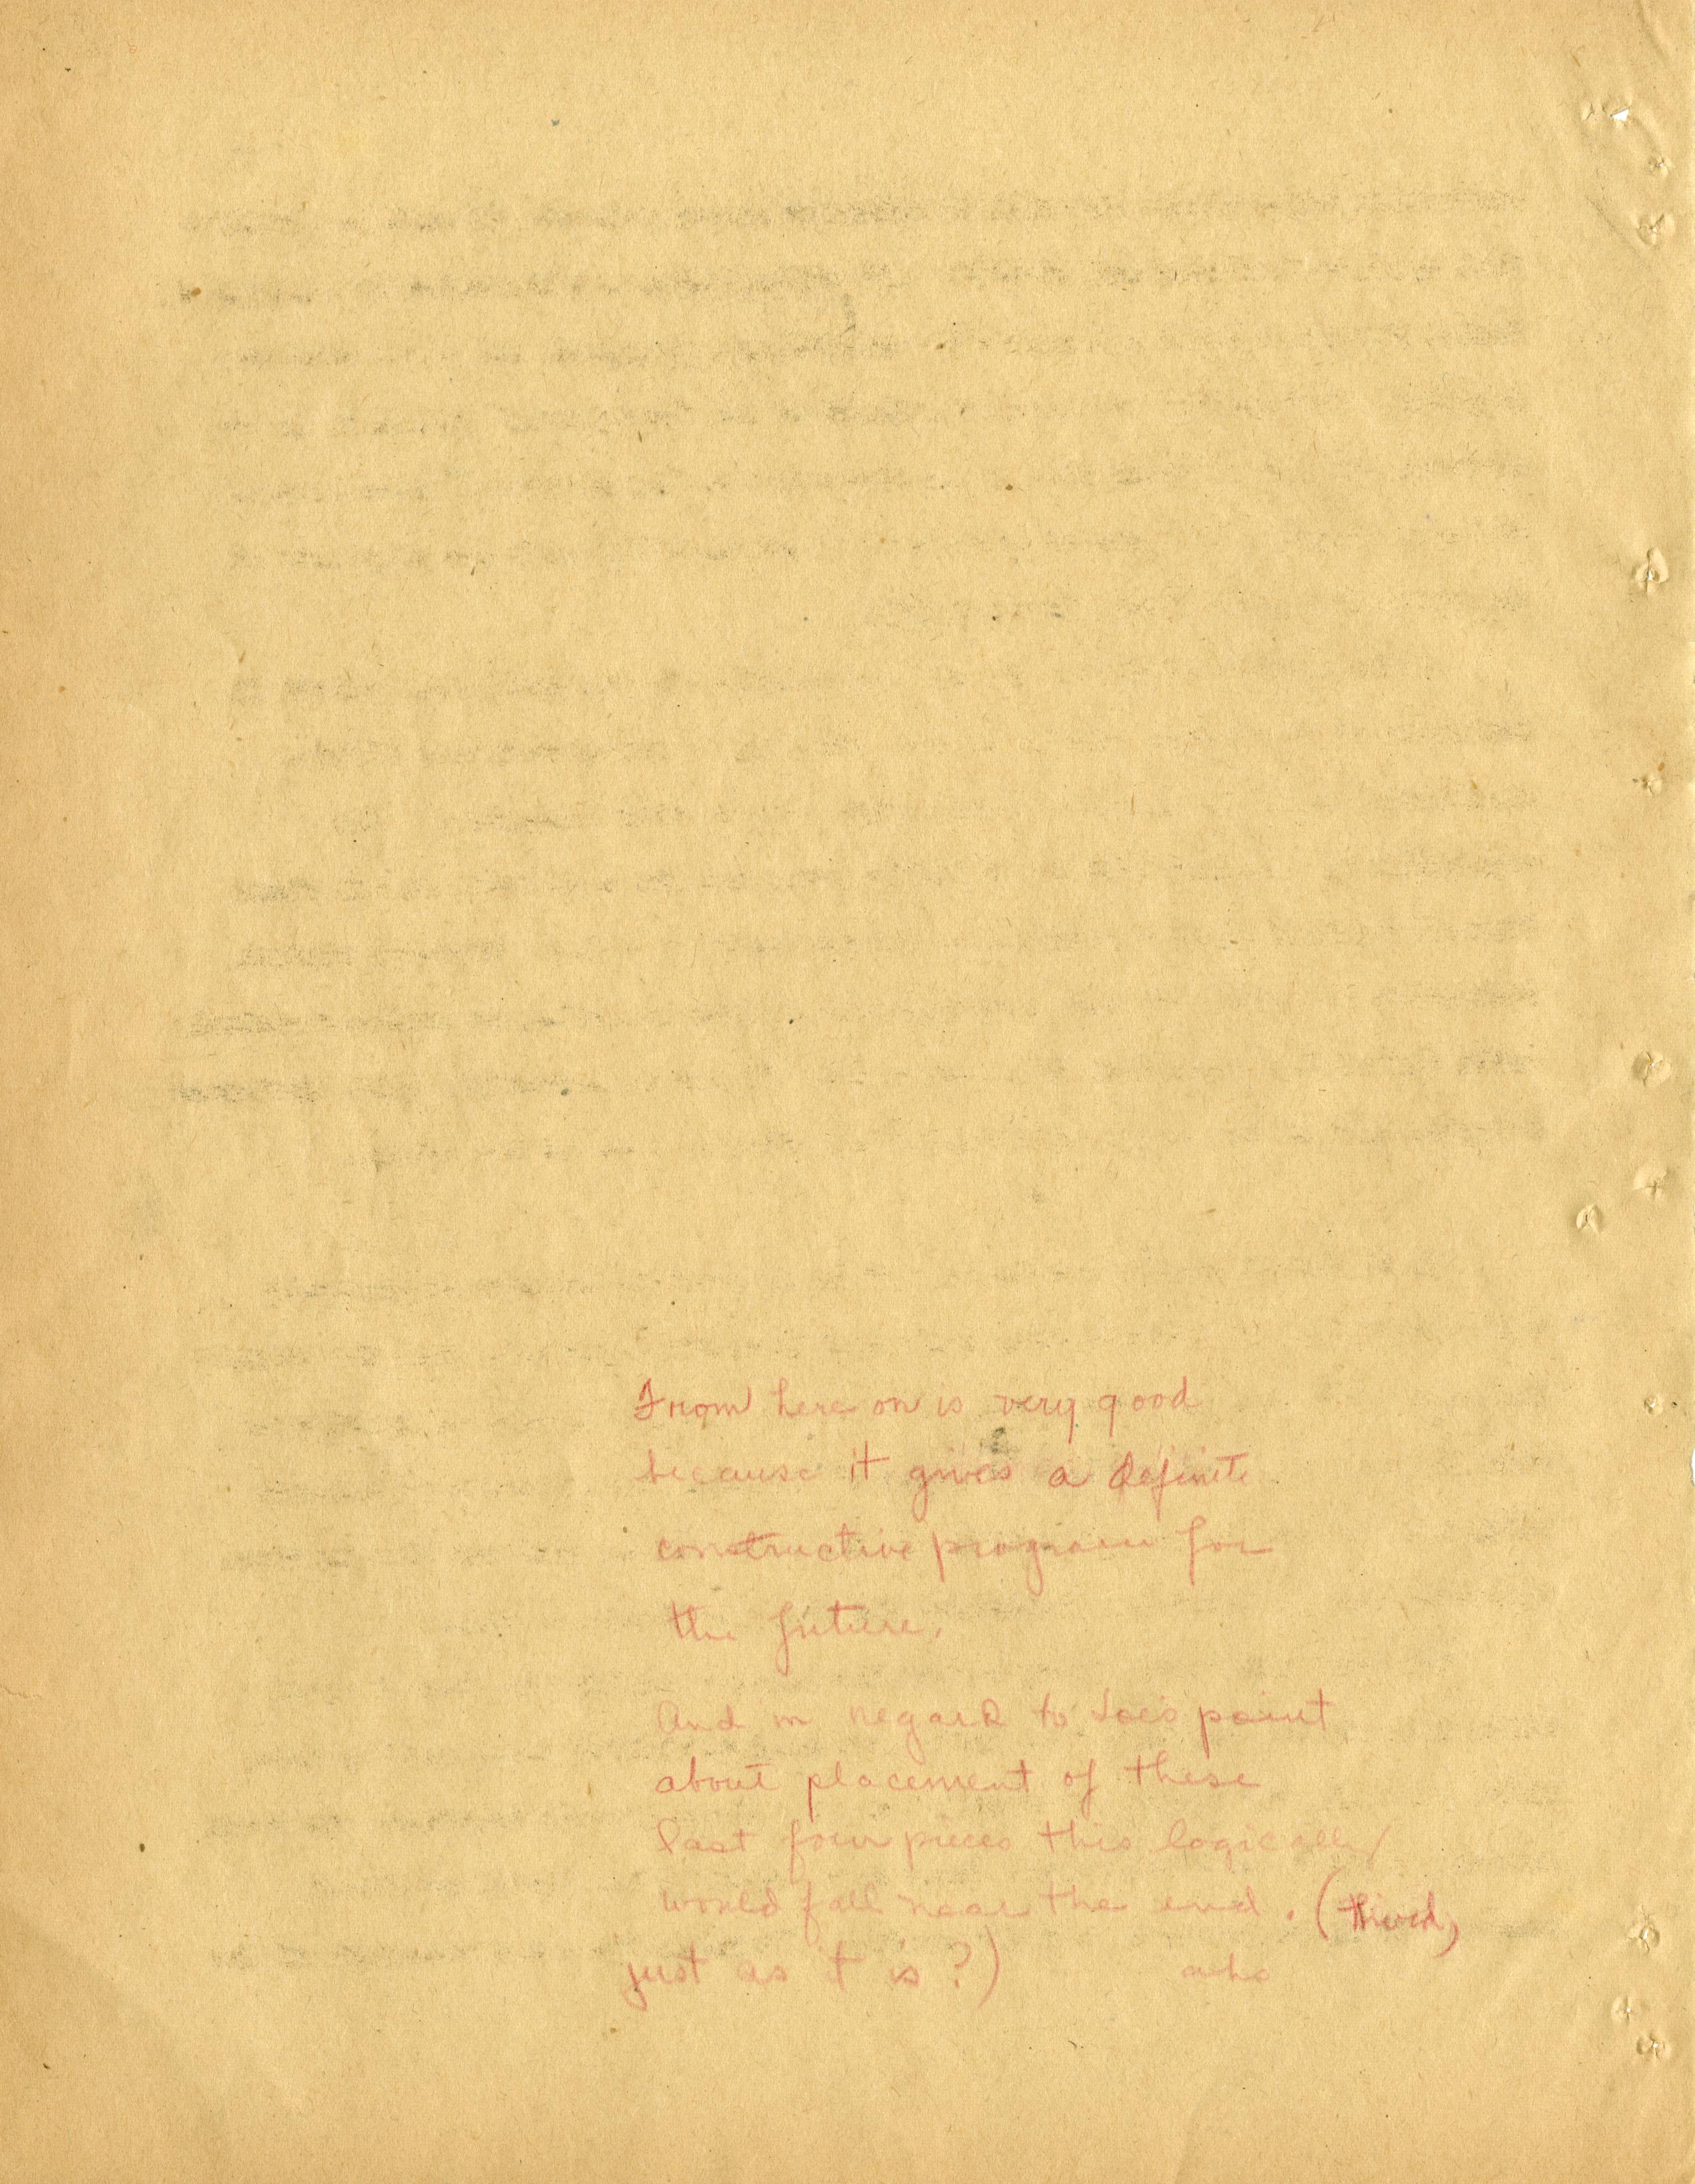 From here on is very good
because it gives a definite
constructive program for
the future.
And in regard to Joe's point
about placement of these
last four pieces this logically
would fall near the end. (third,
just as it is?)